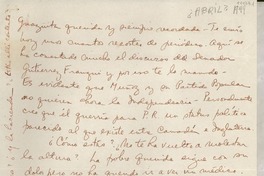 ¿ABRIL? 1949
Guayito querido y siempre recordado - Te envío
hoy unos cuantos recortes de periódico. Aquí se
ha comentado mucho el discurso del Senador
Gutierrez Franqui y por eso te lo mando.
Es evidente que Muñoz y su Partido Popular
no quieren ahora la Independencia. Personalmente
creo que él querría para P.R. un status político
parecido al que existe entre Canadá e Inglaterra
¿Cómo estás? ¿No te ha vuelto a molestar
la altura? La pobre Querida sigue con su
dolor pero no ha querido ir a ver un médico.